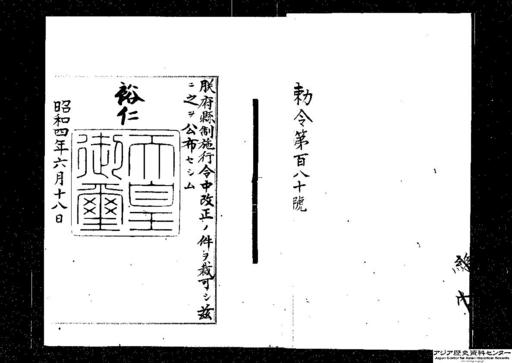 勅令第百八十號
總
内
朕府縣制施行令中改正ノ件ヲ裁可シ茲
ニ之ヲ公布セシム
裕仁
天皇
御璽
昭和四年六月十八日
アジア歴史資料センター
Japan Center for Asian Historical Records